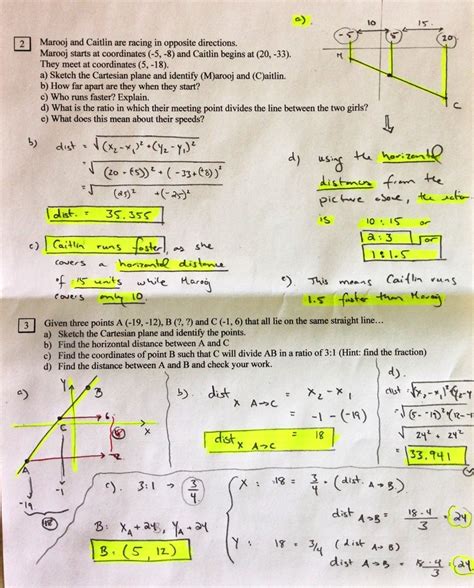 a).
10 15
-5 5 20
M
C
2 Marooj and Caitlin are racing in opposite directions.
Marooj starts at coordinates (-5, -8) and Caitlin begins at (20, -33).
They meet at coordinates (5, -18).
a) Sketch the Cartesian plane and identify (M)arooj and (C)aitlin.
b) How far apart are they when they start?
c) Who runs faster? Explain.
d) What is the ratio in which their meeting point divides the line between the two girls?
e) What does this mean about their speeds?
b) dist = √(x₂-x₁)² + (y₂-y₁)²
= √(20-(-5))² + (-33+(+8))²
= √(25)² + (-25)²
dist. = 35.355
c) Caitlin runs faster, as she
covers a horizontal distance
of 15 units while Marooj
covers only 10
d) using the horizontal
distances from the
picture above, the ratio
is 10:15 or
2:3 or
1:1.5
e). This means Caitlin runs
1.5 faster than Marooj
3 Given three points A (-19, -12), B (?, ?) and C (-1, 6) that all lie on the same straight line…
a) Sketch the Cartesian plane and identify the points.
b) Find the horizontal distance between A and C
c) Find the coordinates of point B such that C will divide AB in a ratio of 3:1 (Hint: find the fraction)
d) Find the distance between A and B and check your work.
a)
Y
B
C
6
X
18
A
-12
-19
-1
18
b). dist x A→C = x₂ - x₁
= -1 - (-19)
dist x A→C = 18
d).
dist = √(x₂-x₁)²+(y₂-y
= √(5--19)²+(12--1
√24² + 24²
= 33.941
c). 3:1 → 3/4
B: X_A + 24, Y_A + 24
B: (5, 12)
X: 18 = 3/4 · (dist. A→B.)
dist A→B = 18·4/3 = 24
Y: 18 = 3/4 (dist A→B)
dist A→B = 18·4/3 = 24